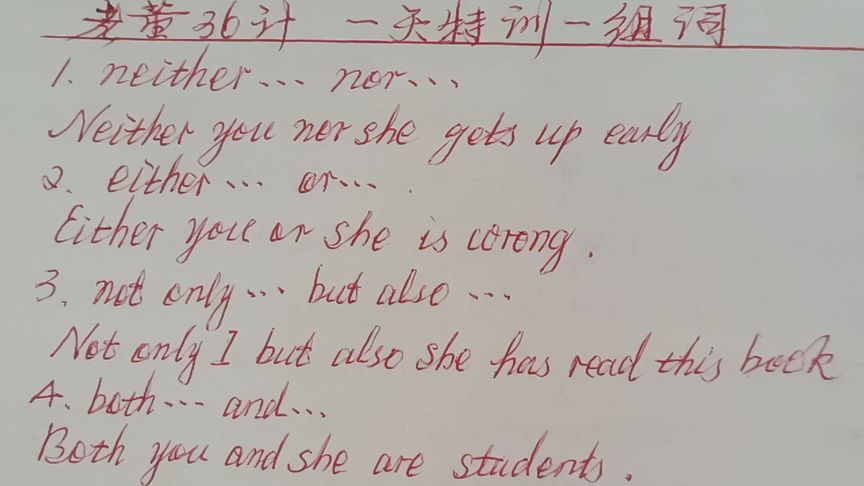 老董36计 一天特训一组词
1. neither... nor...
Neither you nor she gets up early
2. either... or....
Either you or she is wrong.
3. not only... but also ...
Not only I but also she has read this book
4. both... and...
Both you and she are students.